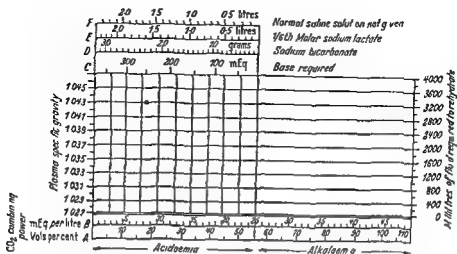 F 2·0 1·5 1·0 0·5 litres Normal saline solut on not g ven
E 2·0 1·5 1·0 0·5 litres ⅙th Molar sodium lactate
D 30 20 10 grams Sodium bicarbonate
C 300 200 100 mEq Base required
Plasma spec fic gravity
1 045
1 043
1 041
1 039
1 037
1 035
1 033
1 031
1 029
1 027
4000
3600
3200
2800
2400
2000
1600
1200
800
400
0
Millilitres of fluid required to rehydrate
CO₂ combin ng power
mEq per litre B
Vols percent A 10 20 30 40 50 60 70 80 90 100 110
Acidaemia Alkalaem a